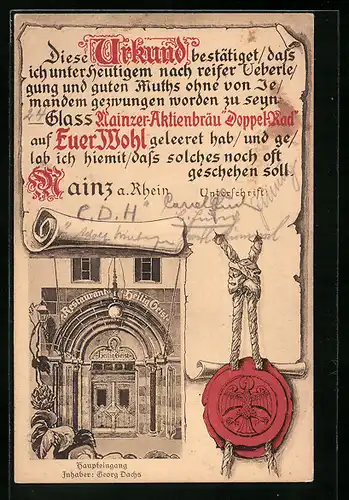 Diese Urkund bestätiget/daß
ich unter Heutigem nach reifer Ueberle/
gung und guten Muths ohne von Je/
mandem gezwungen worden zu seyn
24 Glass Mainzer-Aktienbräu "Doppel-Rad"
auf Euer Wohl geleeret hab/ und ge/
lob ich hiemit/dass solches noch oft
geschehen soll.
Mainz a. Rhein Unterschrift:
"C.D.H"
Restaurant Heilig Geist
Heilig Geist
Haupteingang
Inhaber: Georg Dachs